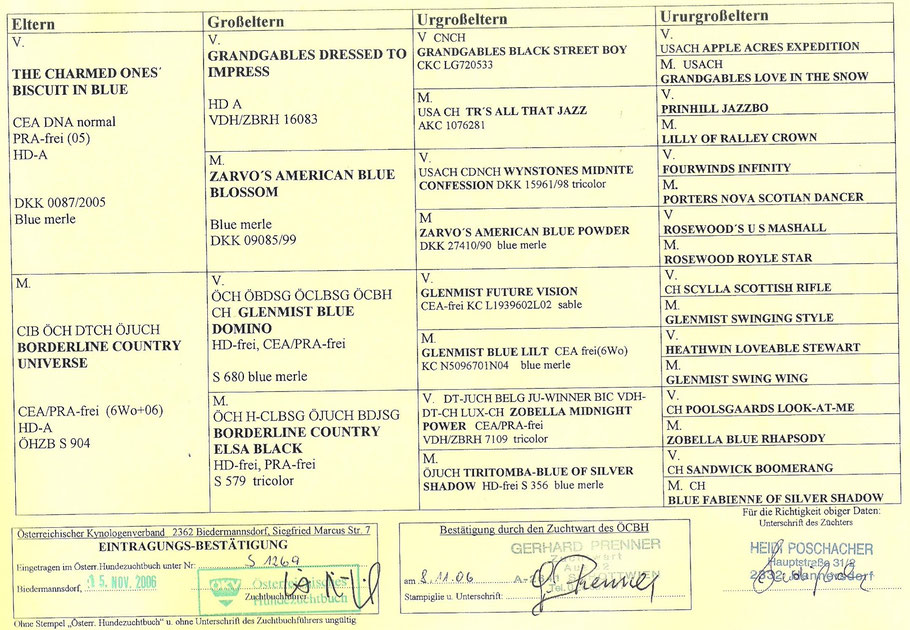 Eltern
V.
THE CHARMED ONES´
BISCUIT IN BLUE
CEA DNA normal
PRA-frei (05)
HD-A
DKK 0087/2005
Blue merle
M.
CIB ÖCH DTCH ÖJUCH
BORDERLINE COUNTRY
UNIVERSE
CEA/PRA-frei (6Wo+06)
HD-A
ÖHZB S 904
Großeltern
V.
GRANDGABLES DRESSED TO
IMPRESS
HD A
VDH/ZBRH 16083
M.
ZARVO´S AMERICAN BLUE
BLOSSOM
Blue merle
DKK 09085/99
V.
ÖCH ÖBDSG ÖCLBSG ÖCBH
CH GLENMIST BLUE
DOMINO
HD-frei, CEA/PRA-frei
S 680 blue merle
M.
ÖCH H-CLBSG ÖJUCH BDJSG
BORDERLINE COUNTRY
ELSA BLACK
HD-frei, PRA-frei
S 579 tricolor
Urgroßeltern
V CNCH
GRANDGABLES BLACK STREET BOY
CKC LG720533
M.
USA CH TR´S ALL THAT JAZZ
AKC 1076281
V.
USACH CDNCH WYNSTONES MIDNITE
CONFESSION DKK 15961/98 tricolor
M
ZARVO´S AMERICAN BLUE POWDER
DKK 27410/90 blue merle
V.
GLENMIST FUTURE VISION
CEA-frei KC L1939602L02 sable
M.
GLENMIST BLUE LILT CEA frei(6Wo)
KC N5096701N04 blue merle
V. DT-JUCH BELG JU-WINNER BIC VDH-
DT-CH LUX-CH ZOBELLA MIDNIGHT
POWER CEA/PRA-frei
VDH/ZBRH 7109 tricolor
M.
ÖJUCH TIRITOMBA-BLUE OF SILVER
SHADOW HD-frei S 356 blue merle
Ururgroßeltern
V.
USACH APPLE ACRES EXPEDITION
M. USACH
GRANDGABLES LOVE IN THE SNOW
V.
PRINHILL JAZZBO
M.
LILLY OF RALLEY CROWN
V.
FOURWINDS INFINITY
M.
PORTERS NOVA SCOTIAN DANCER
V
ROSEWOOD´S U S MASHALL
M.
ROSEWOOD ROYLE STAR
V.
CH SCYLLA SCOTTISH RIFLE
M.
GLENMIST SWINGING STYLE
V.
HEATHWIN LOVEABLE STEWART
M.
GLENMIST SWING WING
V.
CH POOLSGAARDS LOOK-AT-ME
M.
ZOBELLA BLUE RHAPSODY
V.
CH SANDWICK BOOMERANG
M. CH
BLUE FABIENNE OF SILVER SHADOW
Österreichischer Kynologenverband 2362 Biedermannsdorf, Siegfried Marcus Str. 7
EINTRAGUNGS-BESTÄTIGUNG
Eingetragen im Österr.Hundezuchtbuch unter Nr: S 1269
Biedermannsdorf, 15. NOV. 2006
ÖKV Österreichisches
Hundezuchtbuch
Zuchtbuchführer
Ohne Stempel „Österr. Hundezuchtbuch" u. ohne Unterschrift des Zuchtbuchführers ungültig
Bestätigung durch den Zuchtwart des ÖCBH
GERHARD PRENNER
Zuchtwart
am 8.11.06
Stampiglie u. Unterschrift:
Für die Richtigkeit obiger Daten:
Unterschrift des Züchters
HEIDI POSCHACHER
Hauptstraße 31/3
2332 Hennersdorf